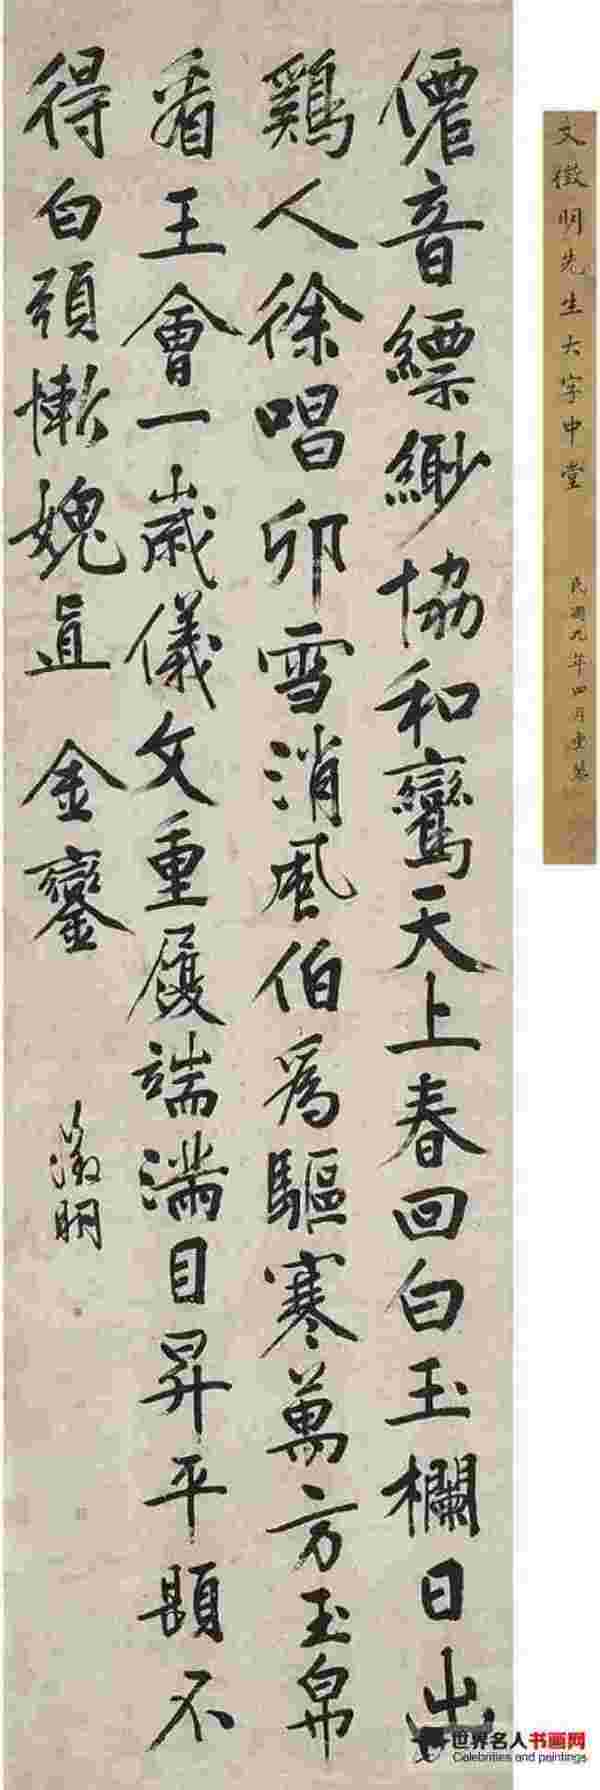 僊音縹緲協和鸞天上春回白玉欄日出
鷄人徐唱卯雪消風伯爲驅寒萬方玉帛
看王會一歲儀文重履端滿目昇平題不
得白頭慚媿直金鑾
徵明
文徵明先生大字中堂
民國九年四月重裝
世界名人书画网
Celebrities and paintings